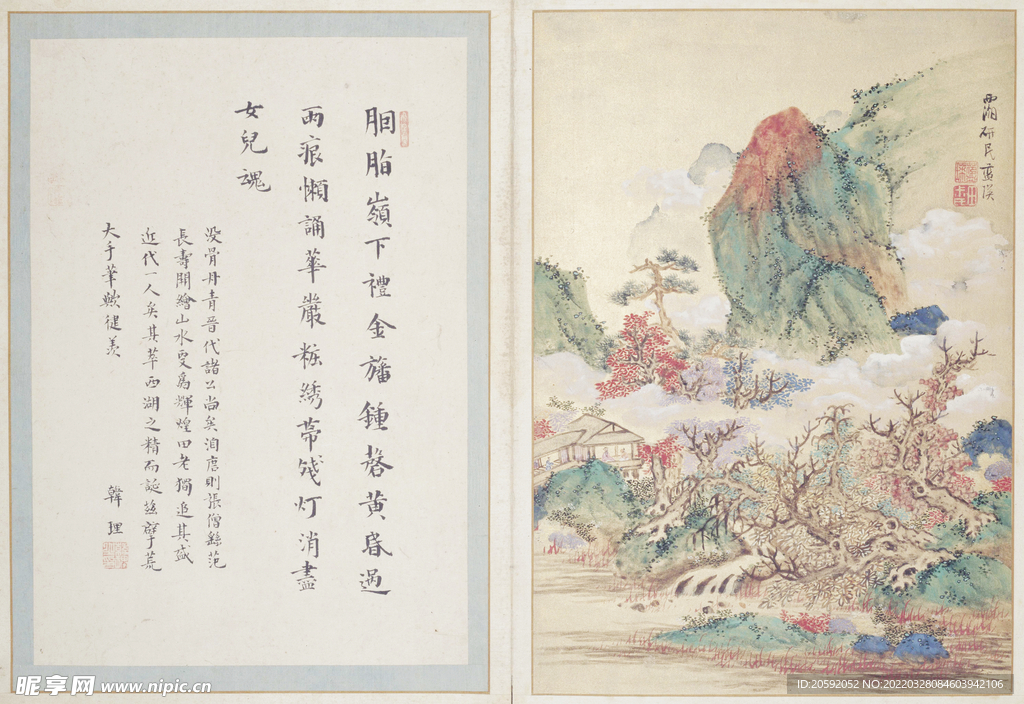 胭脂嶺下禮金旛鍾磬黄昏過
雨痕懶誦華嚴粧綉帶残灯消盡
女兒魂
没骨丹青晉代諸公尚矣洎唐則張僧繇范
長壽開繪山水更為輝煌田老獨追其盛
近代一人矣其萃西湖之精而誕茲擘荒
大手筆歟健羨
韓理
西湖研民藍瑛
昵享网 www.nipic.cn
ID:20592052 NO:20220328084603942106